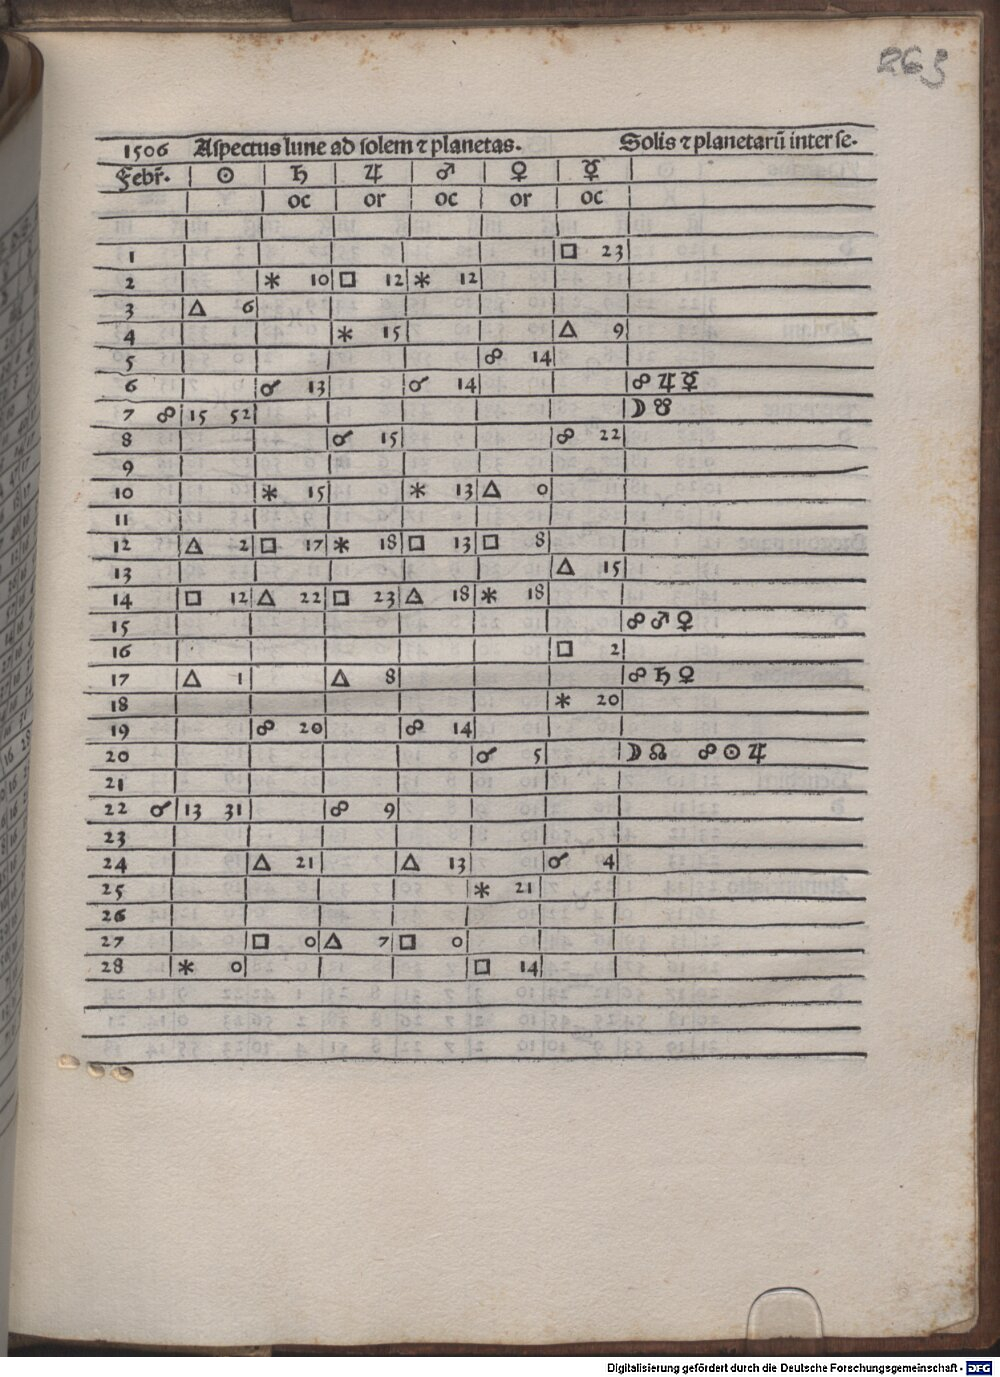 263
1506 Aspectus lune ad solem ⁊ planetas. Solis ⁊ planetarū inter se.
Febr̄. ☉ ♄ ♃ ♂ ♀ ☿
oc or oc or oc
1 □ 23
2 ⚹ 10 □ 12 ⚹ 12
3 △ 6
4 ⚹ 15 △ 9
5 ☍ 14
6 ☌ 13 ☌ 14 ☍ ♃ ☿
7 ☍ 15 52 ☽ ☋
8 ☌ 15 ☍ 22
9
10 ⚹ 15 ⚹ 13 △ 0
11
12 △ 2 □ 17 ⚹ 18 □ 13 □ 8
13 △ 15
14 □ 12 △ 22 □ 23 △ 18 ⚹ 18
15 ☍ ♂ ♀
16 □ 2
17 △ 1 △ 8 ☍ ♄ ♀
18 ⚹ 20
19 ☍ 20 ☍ 14
20 ☌ 5 ☽ ☊ ☍ ☉ ♃
21
22 ☌ 13 31 ☍ 9
23
24 △ 21 △ 13 ☌ 4
25 ⚹ 21
26
27 □ 0 △ 7 □ 0
28 ⚹ 0 □ 14
Digitalisierung gefördert durch die Deutsche Forschungsgemeinschaft - DFG